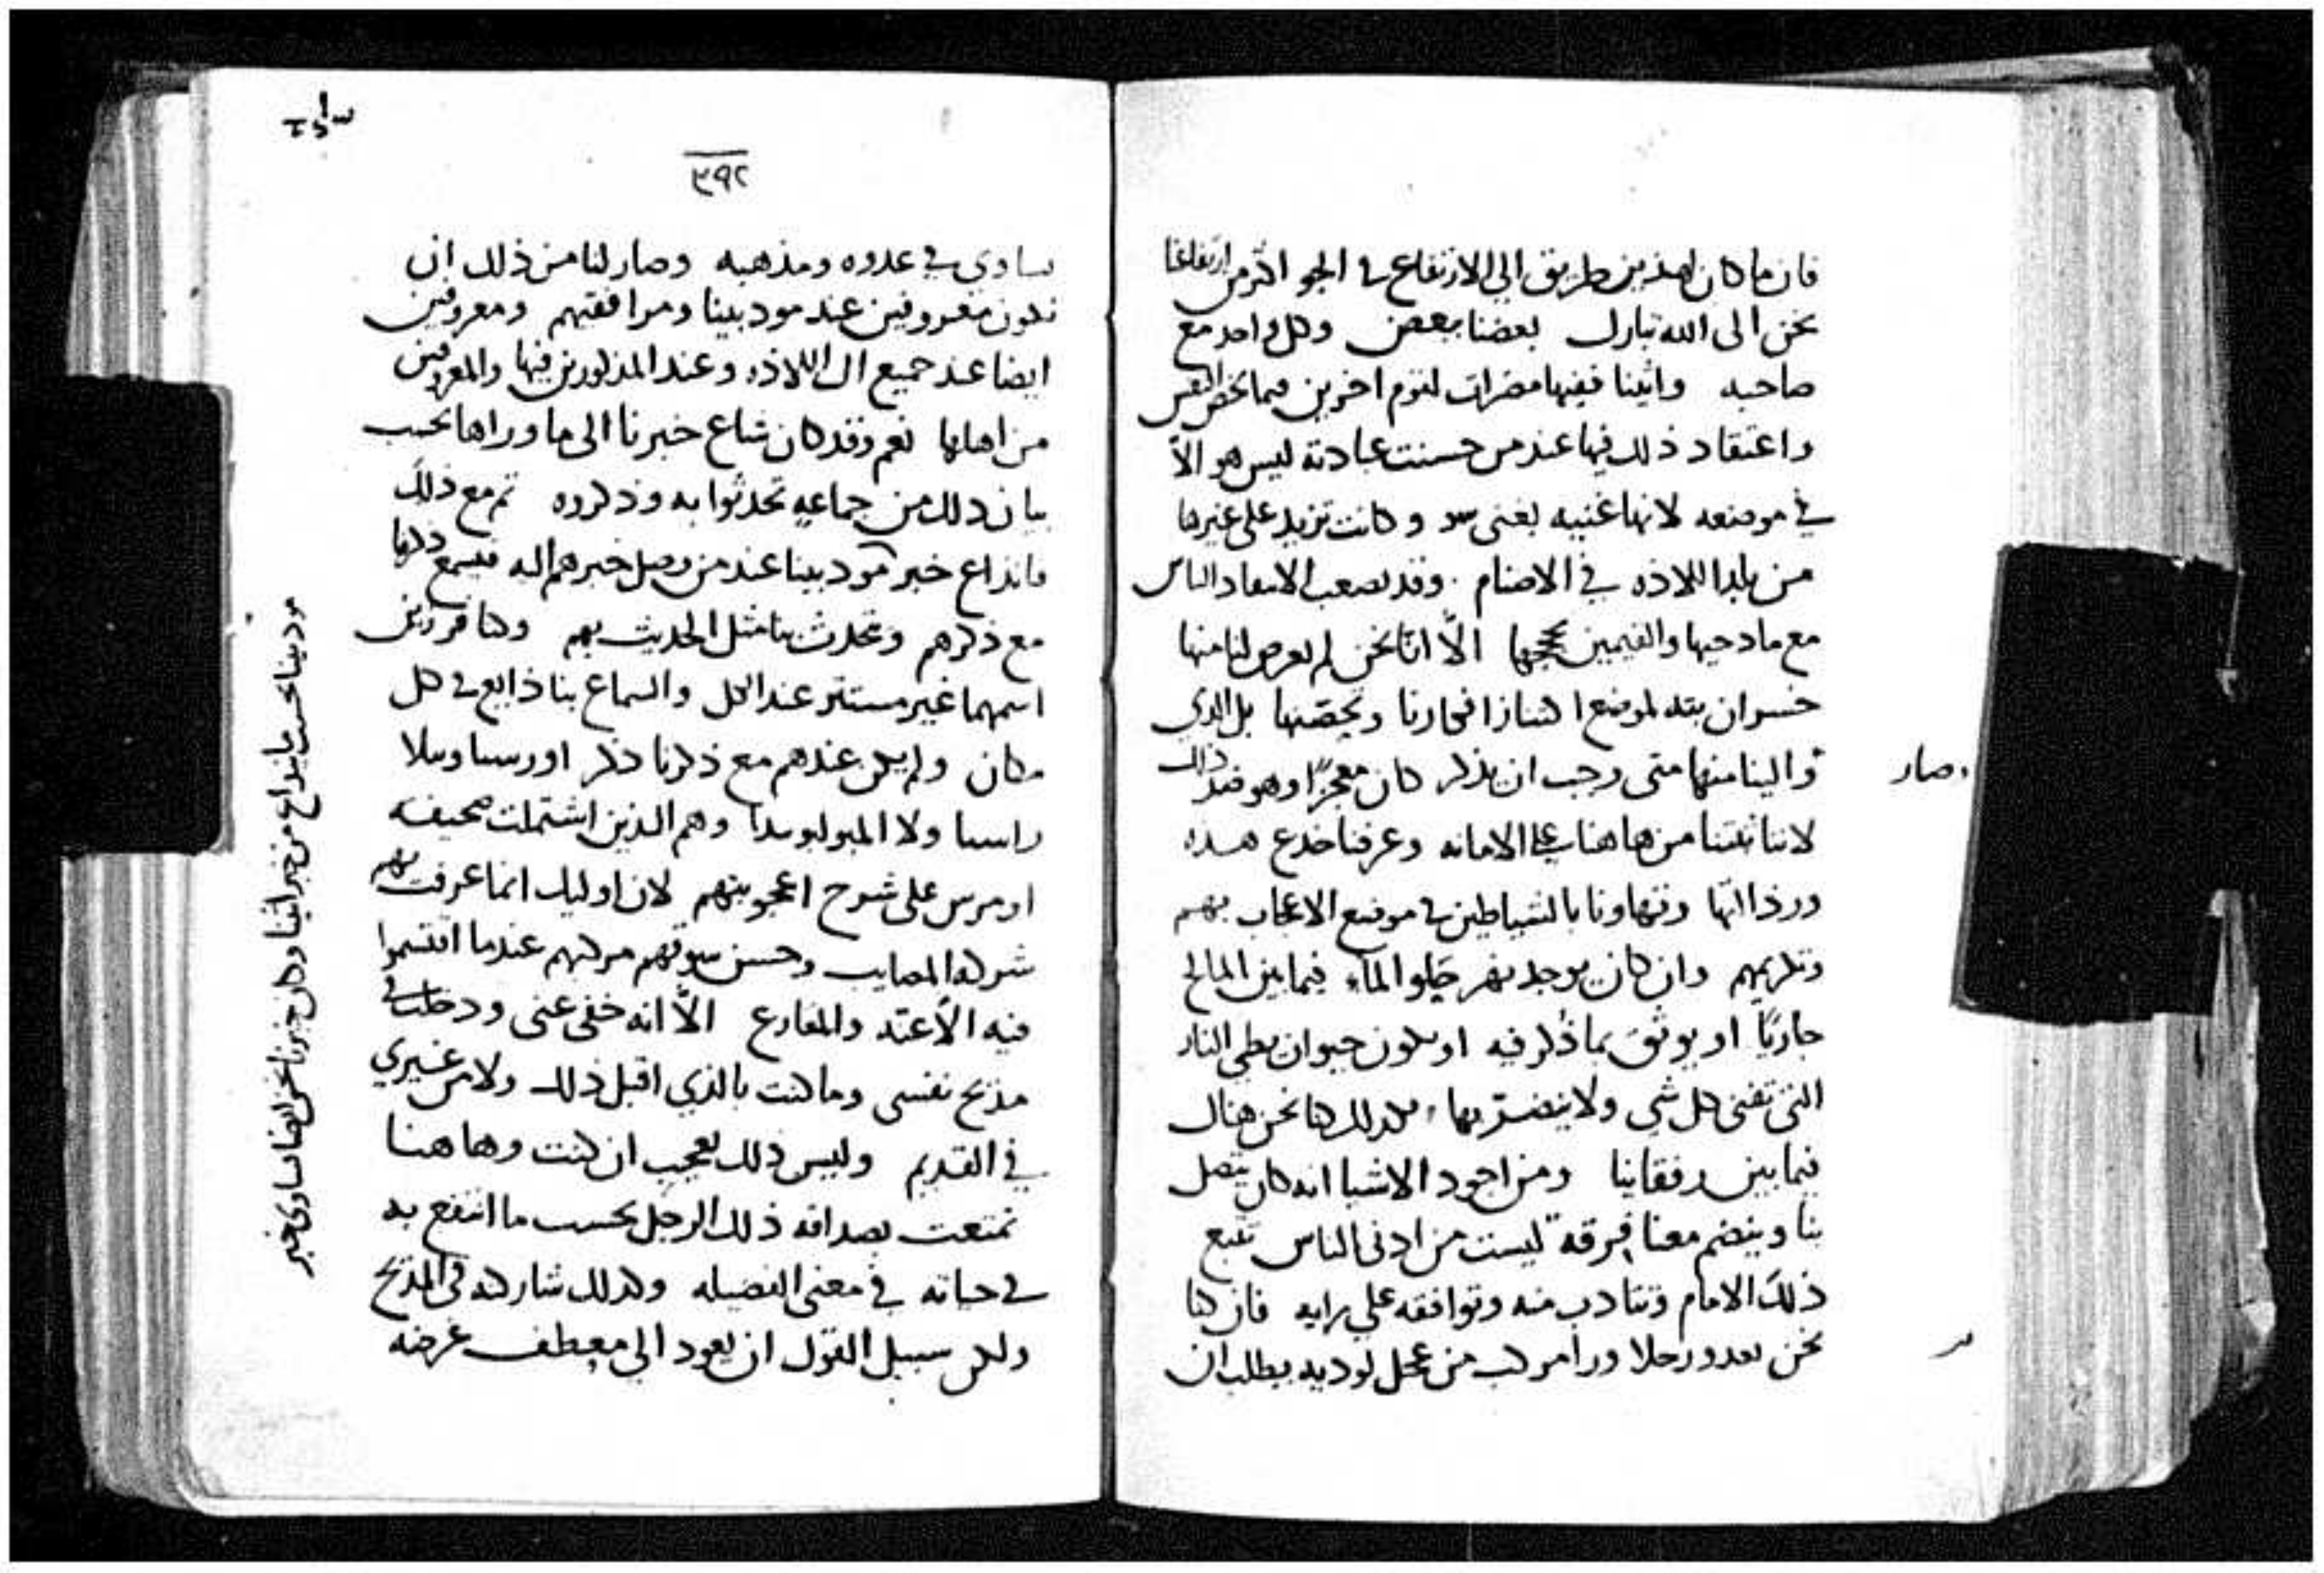 فان ما كان لهذين طريق الي الارتفاع في الجو اكثر من ارتفاعنا
نحن الى الله تبارك بعضنا ببعض وكل واحد مع
صاحبه واثينا ففيها مضرات لقوم اخرين فيما يخص النفس
واعتقاد ذلك فيها عند من حسنت عبادته ليس هو الّا
في موضعه لانها غنيه لغنى سو وكانت تزيد على غيرها
من بلد اللاذه في الاصنام وقد يصعب الناس
مع مادحيها والقيمين بحججها الّا انّا نحن لم يعرض لنا منها
خسران بته لموضع ا فكارنا وتحصّنها بل الذي
وصار
والينا منها متى وجب ان يذكر كان معجزًا وهو ضد ذلك
لاننا ثبتنا من هاهنا علي الامانه وعرفنا خدع هذه
ورذالتها وتهاوننا بالشياطين في موضع الاعجاب بهم
وتكريمهم وان كان يوجد نهر حلو الماء فيما بين المالح
جاريًا او يوثق بما ذكر فيه او يكون حيوان يطي النار
التي تفني كل شي ولا ينضر بها فكذلك كنا نحن هناك
فيما بين رفقاينا ومن اجود الاشيا انه كان يتصل
بنا وينضم معنا فرقة ليست من ادنى الناس تتبع
ذلك الامام وتتادب منه وتوافقه علي رايه فان كنا
نحن نعدو رجلا ورا مركب من عجل لوديه يطلب ان
٣٩٢
يساوي في عدوه ومذهبه وصار لنا من ذلك ان
نكون معروفين عند مودبينا ومرافقيهم ومعروفين
ايضا عند جميع ال اللاذه وعند المذكورين فيها والمعروفين
من اهلها نعم وقد كان شاع خبرنا الى ما وراها بحسب
بيان ذلك من جماعه تحدثوا به وذكروه ثم مع ذلك
فانذاع خبر مودبينا عند من وصل خبرهم اليه فيسمع ذكرنا
مع ذكرهم وتحدث بنا مثل الحديث بهم وكنا فردين
اسمهما غير مستتر عند الكل والسماع بنا ذايع في كل
مكان ولم يكن عندهم مع ذكرنا ذكر اورسسا وبيلا
راسا ولا وهم الذين اشتملت صحيفه
اومرس على شرح اعجوبتهم لان اوليك انما عرفت بهم
شركه المصايب وحسن سوقهم مركبهم عندما اقتسموا
فيه الاعنّه والمقارع الّا انه خفى عنى ودخلت في
مديح نفسي وما كنت بالذي اقبل ذلك ولا من غيري
في القديم وليس ذلك بعجيب ان كنت وها هنا
تمتعت بصداقه ذلك الرجل بحسب ما انتفع به
في حياته في معنى الفضيله وكذلك شاركته في المديح
ولكن سبيل القول ان يعود الي معطف غرضه
مودبينا بحسب ما انذاع من خبر اثينا وكان خبرنا نحن ايضا يساوي خبر